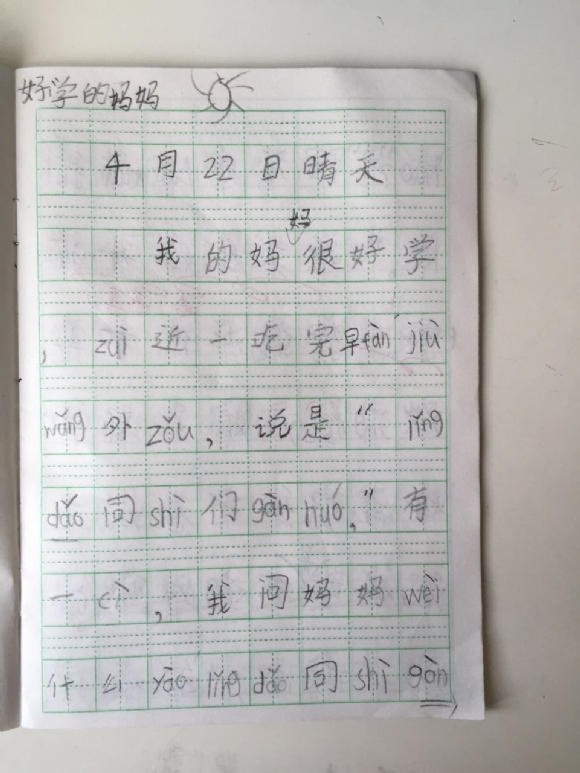 好学的妈妈
4月22日晴天
妈
我的妈很好学
，zuì近一吃完早fàn jiù
wǎng外zǒu，说是“lǐng
dǎo同shì们gàn huó，”有
一cì，我问妈妈wèi
什么yào lǐng dǎo同shì gàn